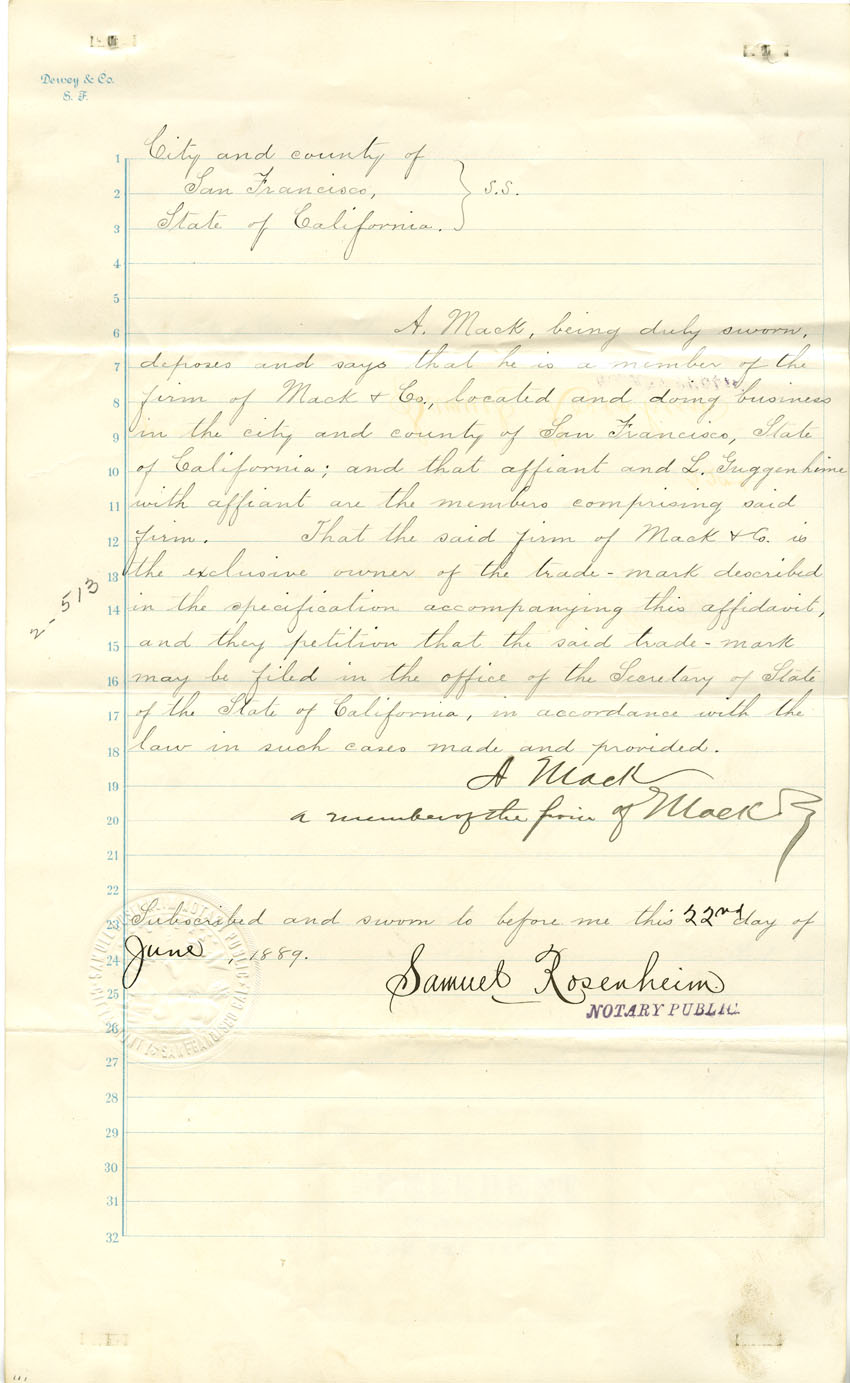 Dewey & Co.
S. F.
City and county of
San Francisco,
S.S.
State of California.
A. Mack, being duly sworn,
deposes and says that he is a member of the
firm of Mack & Co., located and doing business
in the city and county of San Francisco, State
of California; and that affiant and L. Guggenhime
with affiant are the members comprising said
firm. That the said firm of Mack & Co. is
the exclusive owner of the trade-mark described
in the specification accompanying this affidavit,
and they petition that the said trade-mark
may be filed in the office of the Secretary of State
of the State of California, in accordance with the
law in such cases made and provided.
A Mack
a member of the firm of Mack
Subscribed and sworn to before me this 22nd day of
June, 1889.
Samuel Rosenheim
NOTARY PUBLIC.
2-513
1
2
3
4
5
6
7
8
9
10
11
12
13
14
15
16
17
18
19
20
21
22
23
24
25
26
27
28
29
30
31
32